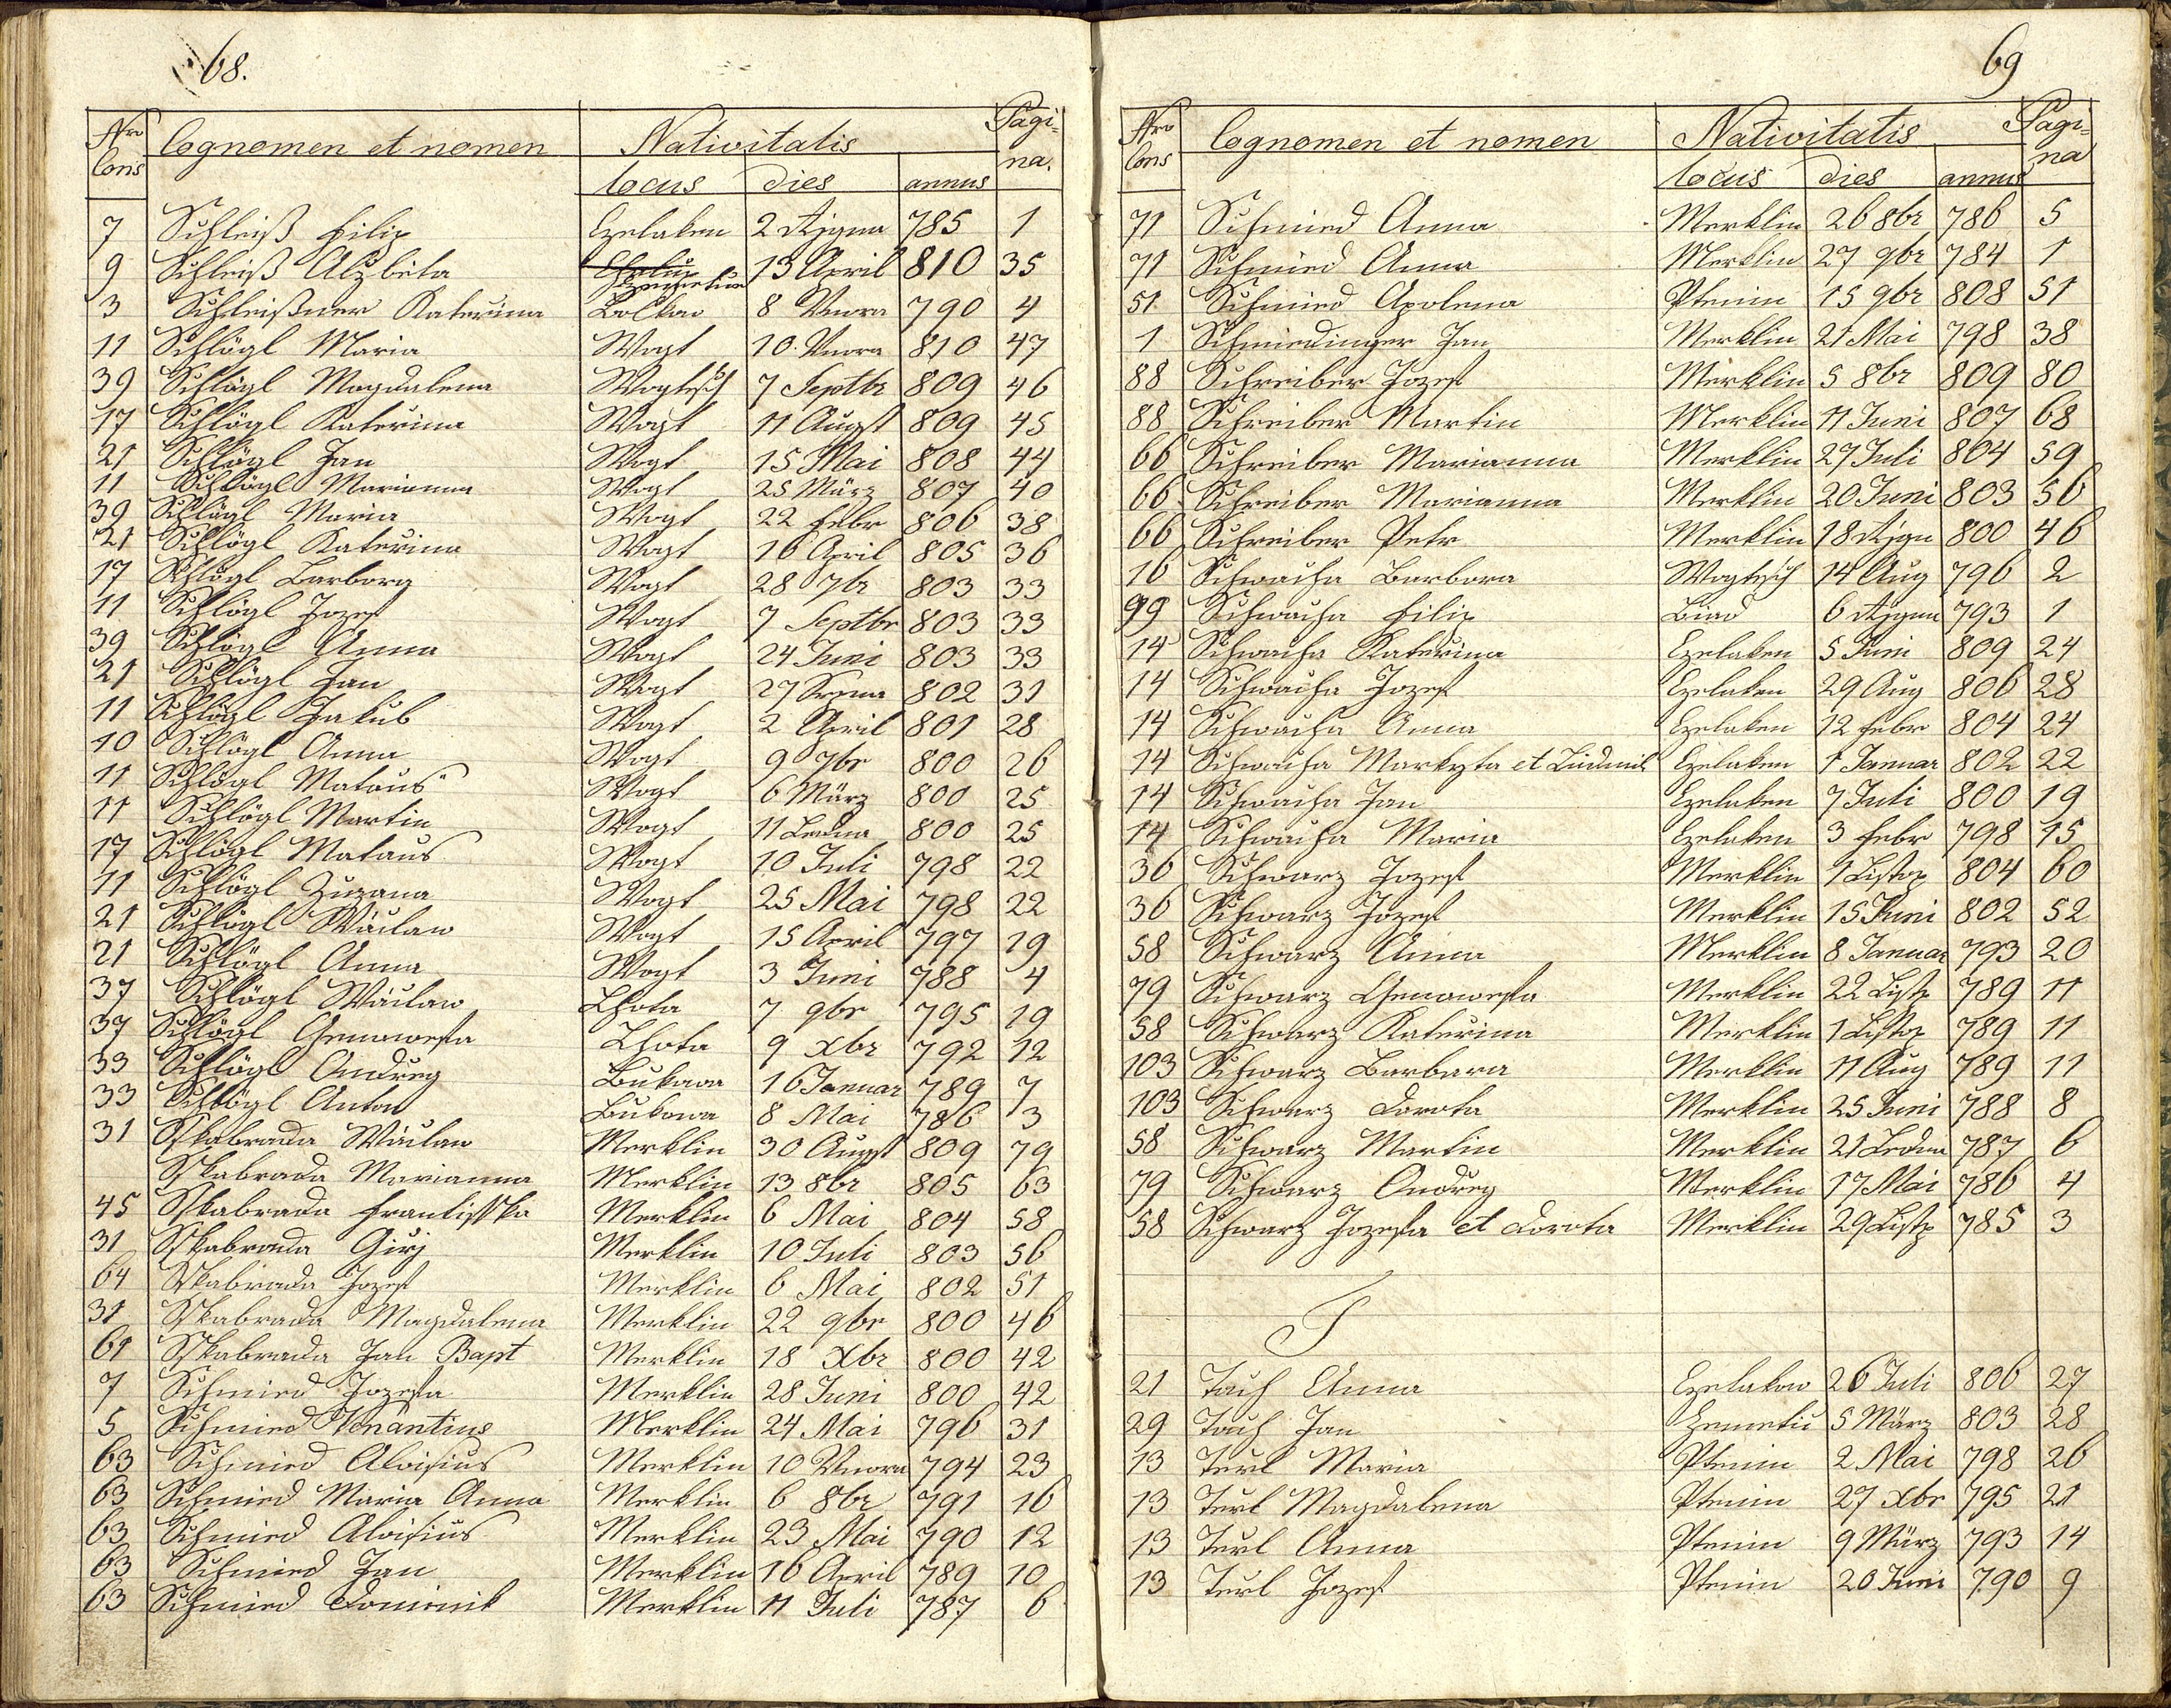 68.
Nro Cons Cognomen et nomen Nativitatis Pagi=na.
locus dies annus
7 Schleiß Filip Czelaken 2 Rjgna 785 1
9 Schleiß Alzbeta 13 April 810 35
3 Schleißner Katerina Bolkow 8 Vnora 790 4
11 Schlögl Maria Wogt 10. Vnora 810 47
39 Schlögl Magdalena Wogtisch 7 Septbr 809 46
17 Schlögl Katerina Wogt 11 Augst 809 45
21 Schlögl Jan Wogt 15 Mai 808 44
11 Schlögl Marianna Wogt 25 März 807 40
39 Schlögl Maria Wogt 22 Febr 806 38
21 Schlögl Katerina Wogt 16 April 805 36
17 Schlögl Barbora Wogt 28 7br 803 33
11 Schlögl Jozef Wogt 7 Septbr 803 33
39 Schlögl Anna Wogt 24 Juni 803 33
21 Schlögl Jan Wogt 27 Srpna 802 31
11 Schlögl Jakub Wogt 2 April 801 28
10 Schlögl Anna Wogt 9 7br 800 26
11 Schlögl Mataus Wogt 6 März 800 25
11 Schlögl Martin Wogt 11 Ledna 800 25
17 Schlögl Mataus Wogt 10 Juli 798 22
11 Schlögl Zuzana Wogt 25 Mai 798 22
21 Schlögl Wáclaw Wogt 15 April 797 19
21 Schlögl Anna Wogt 3 Juni 788 4
37 Schlögl Wáclaw Lhota 7 9br 795 19
37 Schlögl Genowefa Lhota 9 Xbr 792 12
33 Schlögl Ondreg Bukowa 16 Januar 789 7
33 Schlögl Anton Bukowa 8 Mai 786 3
31 Sskabrada Wáclaw Merklin 30 Augst 809 79
Sskabrada Marianna Merklin 13 8br 805 63
45 Sskabrada Frantisska Merklin 6 Mai 804 58
31 Sskabrada Girj Merklin 10 Juli 803 56
64 Sskabrada Jozef Merklin 6 Mai 802 51
31 Sskabrada Magdalena Merklin 22 9br 800 46
61 Sskabrada Jan Bapt Merklin 18 Xbr 800 42
7 Schmied Jozefa Merklin 28 Juni 800 42
5 Schmied Venantius Merklin 24 Mai 796 31
63 Schmied Aloisius Merklin 10 Vnora 794 23
63 Schmied Maria Anna Merklin 6 8br 791 16
63 Schmied Aloisius Merklin 23 Mai 790 12
63 Schmied Jan Merklin 16 April 789 10
63 Schmied Dominik Merklin 11 Juli 787 6
69
Nro Cons Cognomen et nomen Nativitatis Pagi=na
locus dies annus
71 Schmied Anna Merklin 26 8br 786 5
71 Schmied Anna Merklin 27 9br 784 1
51 Schmied Apolena Ptenin 15 9br 808 51
1 Schmiedinger Jan Merklin 21 Mai 798 38
88 Schreiber Jozef Merklin 5 8br 809 80
88 Schreiber Martin Merklin 11 Juni 807 68
66 Schreiber Marianna Merklin 27 Juli 804 59
66 Schreiber Marianna Merklin 20 Juni 803 56
66 Schreiber Petr Merklin 18 Rjgn 800 46
16 Schwacha Barbora Wogtisch 14 Aug 796 2
99 Schwacha Filip Biad 6 Rjgna 793 1
14 Schwacha Katerina Czelaken 5 Juni 809 24
14 Schwacha Jozef Czelaken 29 Aug 806 28
14 Schwacha Anna Czelaken 12 Febr 804 24
14 Schwacha Markyta et Ludmil Czelaken 1 Januar 802 22
14 Schwacha Jan Czelaken 7 Juli 800 19
14 Schwacha Maria Czelaken 3 Febr 798 15
36 Schwarz Jozef Merklin 1 Listop 804 60
36 Schwarz Jozef Merklin 15 Juni 802 52
58 Schwarz Anna Merklin 8 Januar 793 20
79 Schwarz Genowefa Merklin 22 Listp 789 11
58 Schwarz Katerina Merklin 1 Listop 789 11
103 Schwarz Barbara Merklin 11 Aug 789 11
103 Schwarz Dorota Merklin 25 Juni 788 8
58 Schwarz Martin Merklin 21 Ledna 787 6
79 Schwarz Ondreg Merklin 17 Mai 786 4
58 Schwarz Jozefa et Dorota Merklin 29 Listp 785 3
T
21 Tach Anna Czelakow 26 Juli 806 27
29 Tach Jan Zemetic 5 März 803 28
13 Terl Maria Ptenin 2 Mai 798 26
13 Terl Magdalena Ptenin 27 Xbr 795 21
13 Terl Anna Ptenin 9 März 793 14
13 Terl Jozef Ptenin 20 Juni 790 9